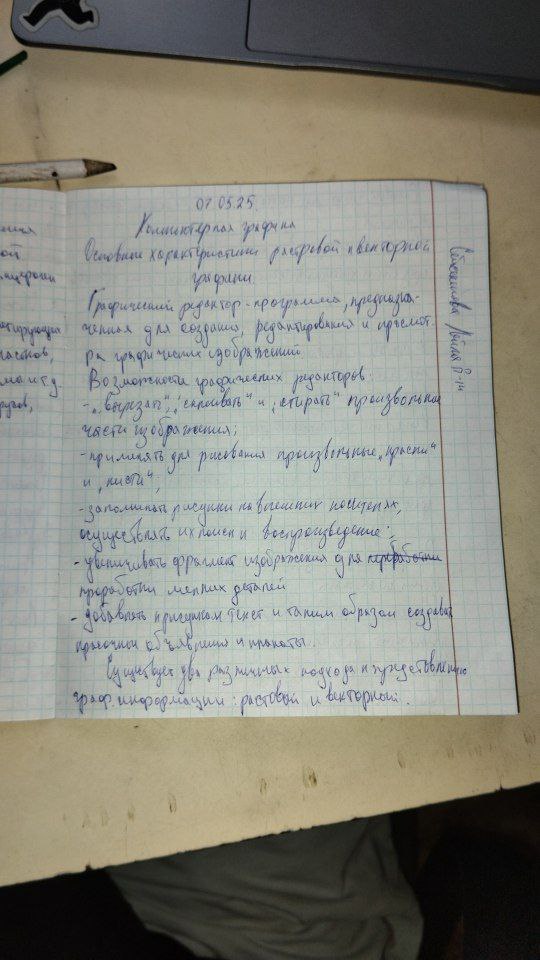 07.03.25
Компьютерная графика
Основные характеристики растровой и векторной
графики.
Графический редактор - программа, предназна-
ченная для создания, редактирования и просмот
ра графических изображений
Возможности графических редакторов:
- „вырезать", „склеивать" и „стирать" произвольные
части изображения;
- применять для рисования произвольные „краски"
и „кисти";
- запоминать рисунки на внешних носителях,
осуществлять их поиск и воспроизведение;
- увеличивать фрагмент изображения для переработки
проработки мелких деталей
- добавлять к рисункам текст и таким образом создавать
красочные объявления и плакаты.
Существует два различных подхода к представлению
граф. информации: растовый и векторный.
Лейла 8-
ой
тирующи
ма и т.д.